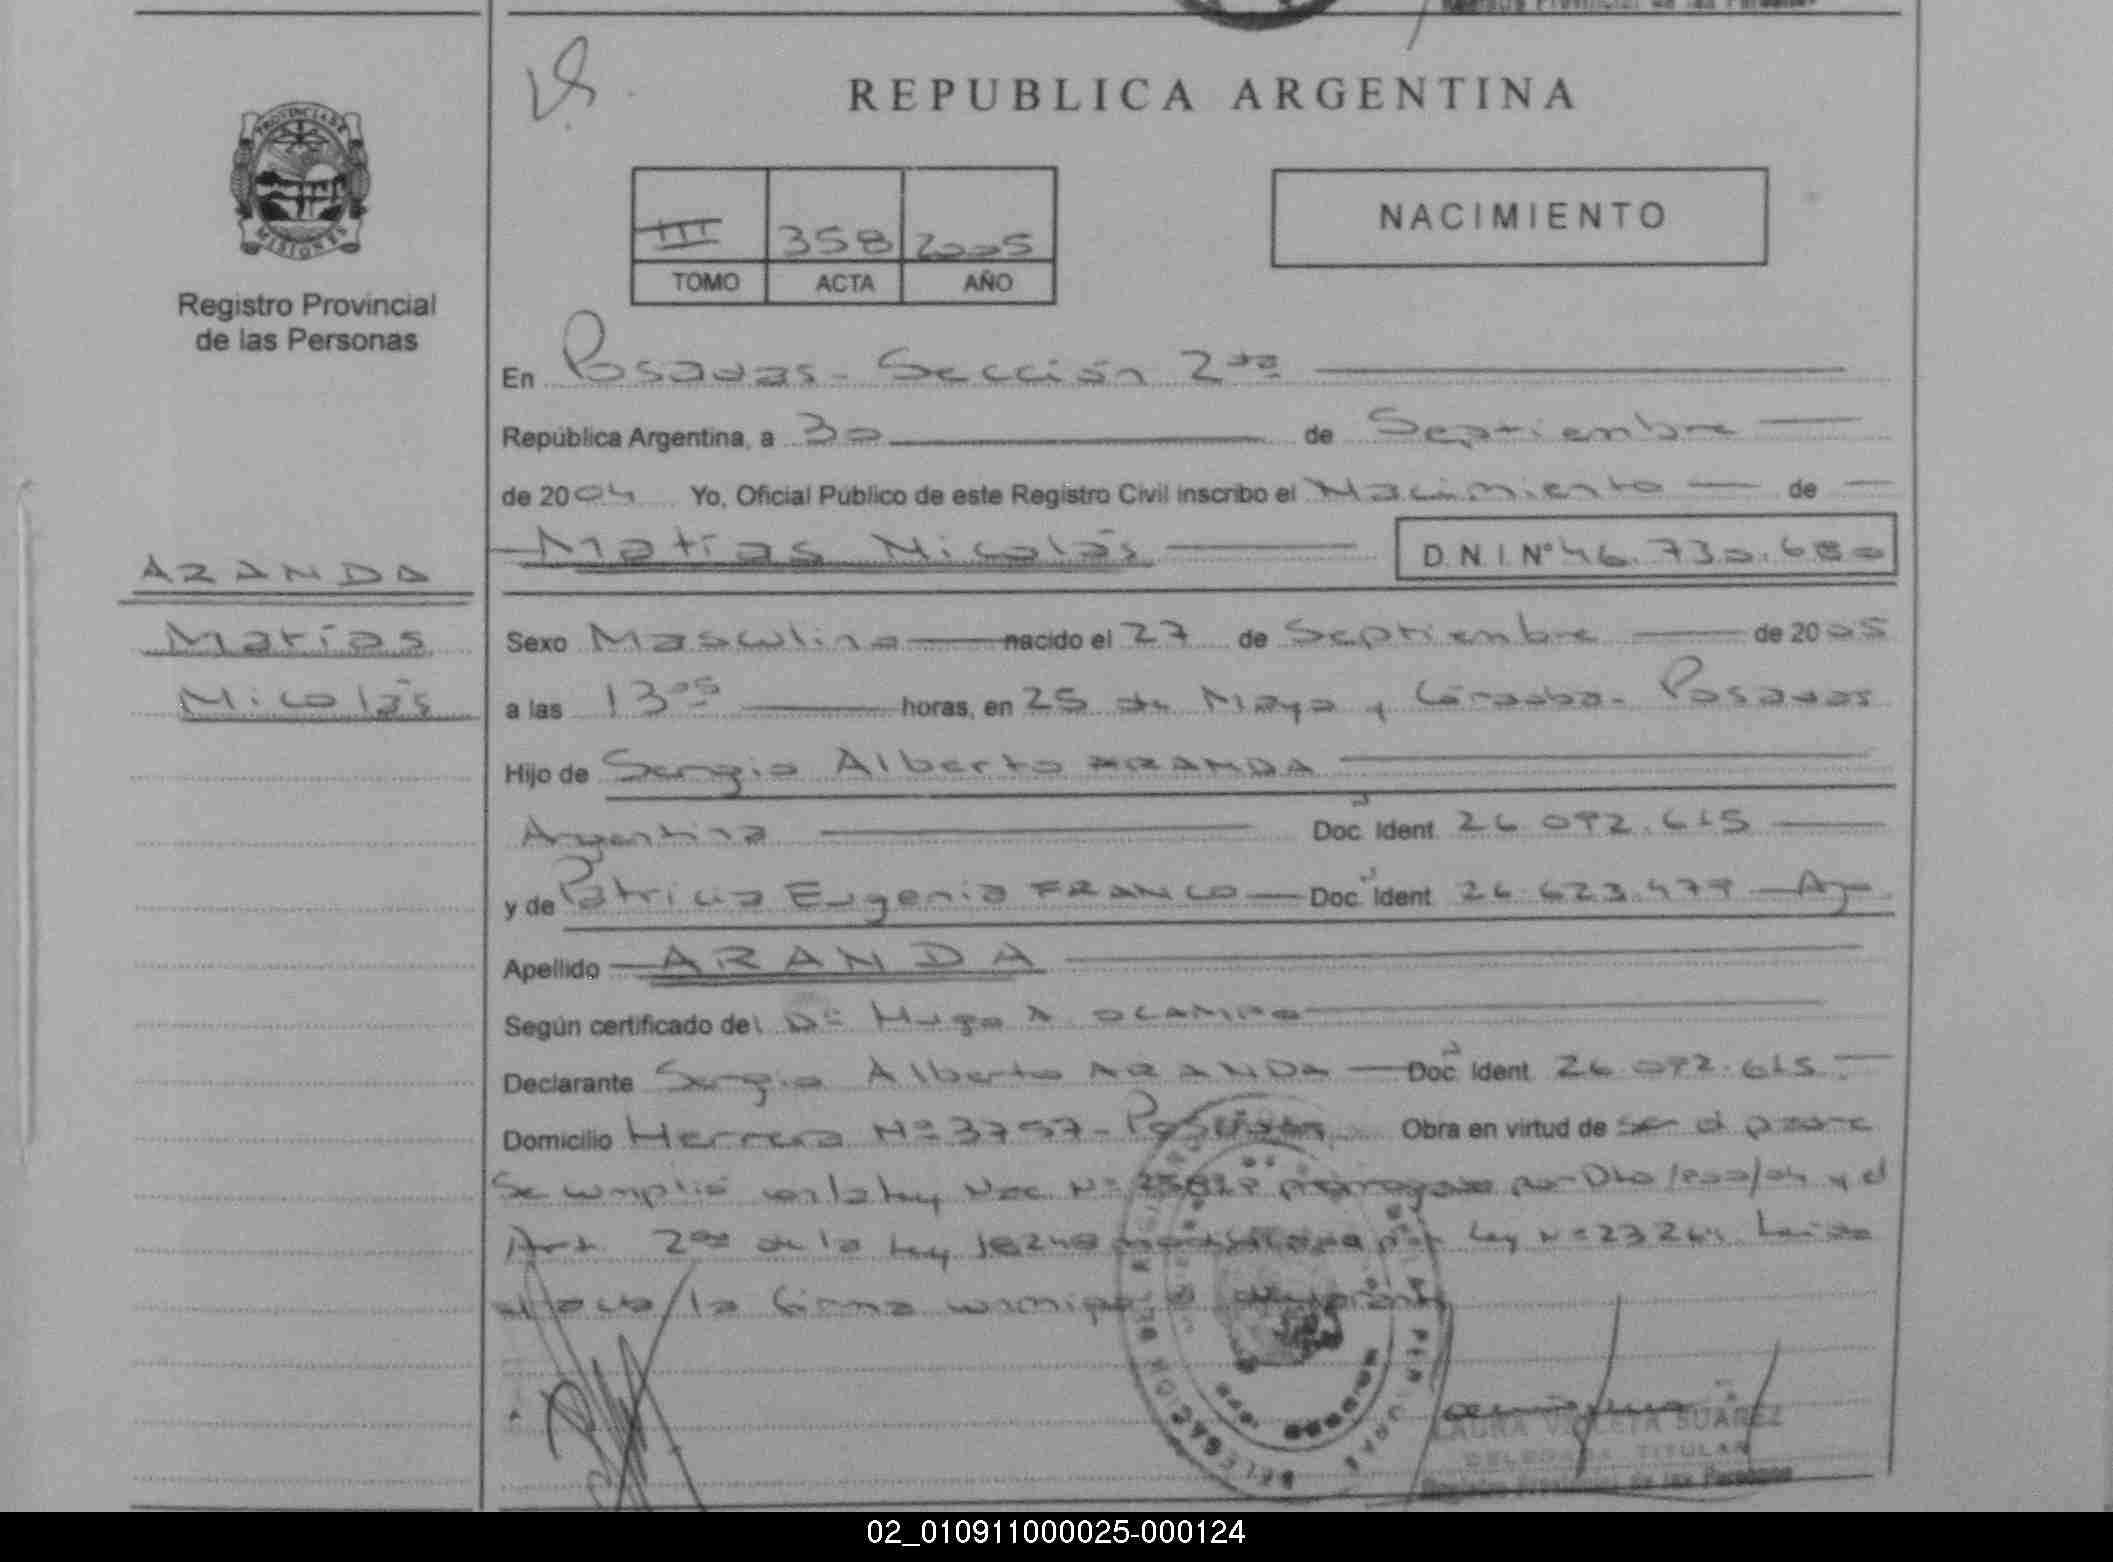 REPUBLICA ARGENTINA
PROVINCIA DE
MISIONES
Registro Provincial
de las Personas
III 358 2005
TOMO ACTA AÑO
NACIMIENTO
En Posadas - Sección 2da
República Argentina, a 30 de Septiembre
de 2004 Yo, Oficial Público de este Registro Civil inscribo el Nacimiento de
Matías Nicolás D.N.I. Nº 46.730.680
ARANDA
Matías
Nicolás
Sexo Masculino nacido el 27 de Septiembre de 2005
a las 13 05 horas, en 25 de Mayo y Córdoba - Posadas
Hijo de Sergio Alberto ARANDA
Argentina Doc. Ident. 26.092.615
y de Patricia Eugenia FRANCO Doc. Ident. 26.623.479
Apellido ARANDA
Según certificado del Dr Hugo A OCAMPO
Declarante Sergio Alberto ARANDA Doc. Ident. 26.092.615
Domicilio Herrera Nº 3757 - Posadas Obra en virtud de ser el padre
Se cumplió con la ley Nac. Nº prorrogada por Dto 1200/04 y el
Art. 2do de la ley 18248 modificada por ley Nº 23264 Leída
el acta la firma conmigo el declarante
LAURA VIOLETA SUAREZ
DELEGADA TITULAR
Registro Provincial de las Personas
02_010911000025-000124